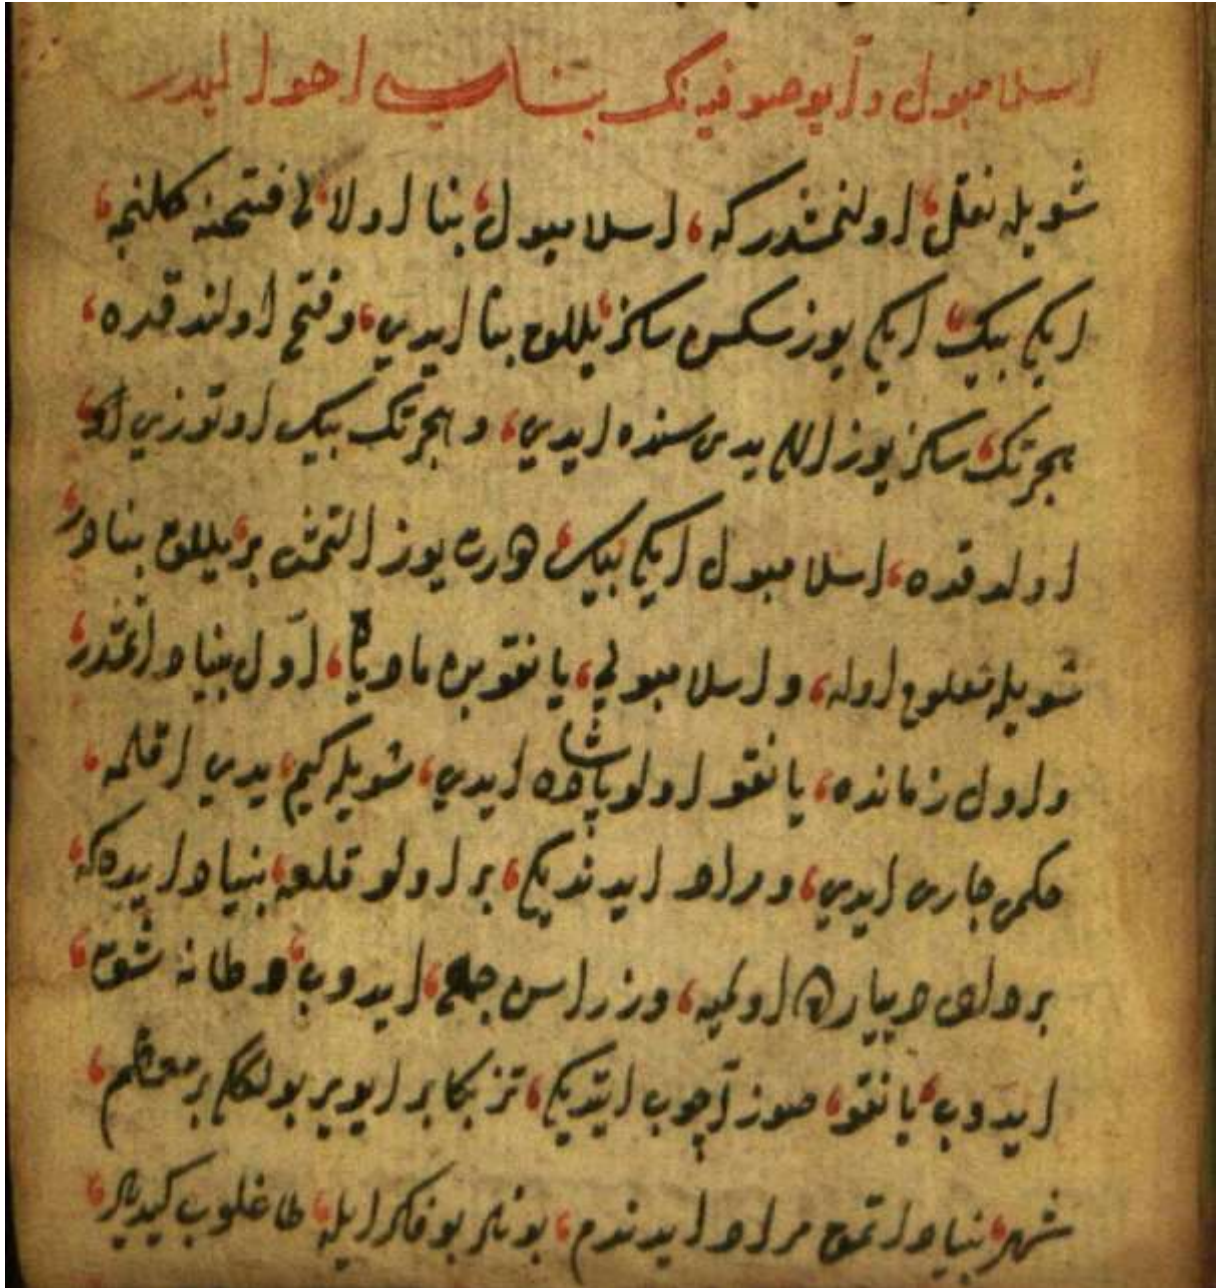 اسلامبول و آيوصوفيه نك بناسي احواليدر
شويله نقل، اولنمشدر كه، اسلامبول، بنا اولالى فتحنه كلنجه،
ايكي بيك، ايكي يوز سكسن سكز، ييللق بنا ايدي، و فتح اولندقده،
هجرتك، سكز يوز اللي يدى سنده ايدي، و هجرتك بيك اوتوزي
اولدقده، اسلامبول ايكي بيك، درت يوز التمش بر، ييللق بنادر،
شويله معلوم اوله، و اسلامبولي، يانقو بن ماديا، اول بنياد اتمشدر،
و اول زمانده، يانقو اولو پادشاه ايدي، شويله كيم، يدي اقلمه،
حكمى جارى ايدي، و مراد ايدنديكي، بر اولو قلعه، بنياد ايده كه،
بر دخى ديارده اولميه، وزراسن جمع، ايدوب، و طانشق،
ايدوب، يانقو، سوز آچوب ايتديكي، تز بكا بر ايو ير بولكم بر معظم،
شهر، بنياد اتمق مراد ايدندم، بونلر بو فكر ايله، طاغلوب كيديلر،